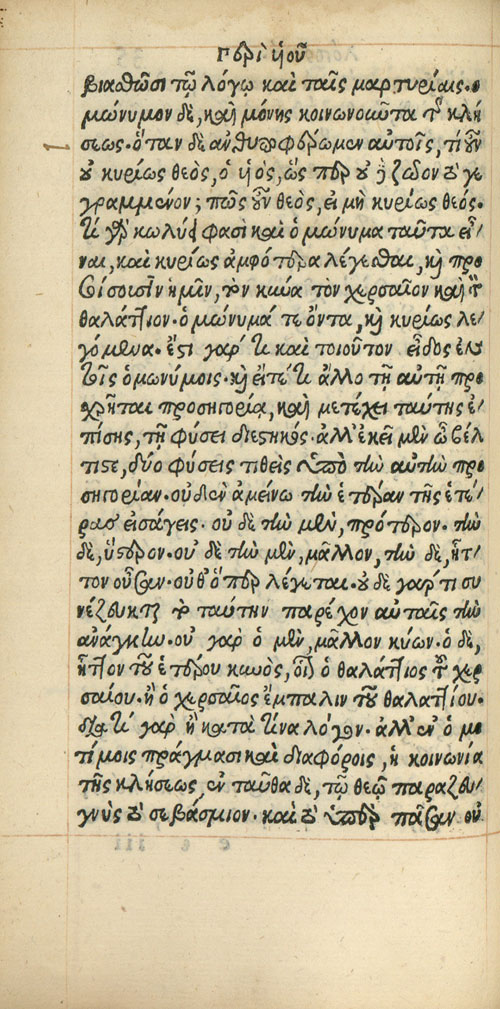 Περὶ ὑιοῦ
βιασθῶσι τῷ λόγῳ καὶ ταῖς μαρτυρίαις. ὁ
μώνυμον δὲ, καὶ μόνης κοινωνοῦντα τῆς κλή
σεως. ὅταν δὲ ἀνθυποφέρωμεν αὐτοῖς, τί οὖν
οὐ κυρίως θεὸς, ὁ ὑιὸς, ὥς περ οὐ δὲ ζῶον τὸ γε
γραμμένον; πῶς οὖν θεὸς, εἰ μὴ κυρίως θεός.
τί γὰρ κωλύει φασὶ καὶ ὁμώνυμα ταῦτα εἶ/
ναι, καὶ κυρίως ἀμφότερα λέγεσθαι, καὶ προ
οίσουσιν ἡμῖν, τὸν κύνα τὸν χερσαῖον καὶ τὸν
θαλάττιον. ὁμώνυμά τε ὄντα, καὶ κυρίως λε/
γόμενα. ἔστι γάρ τι καὶ τοιοῦτον εἶδος ἐν
τοῖς ὁμωνύμοις. καὶ εἴτέ τι ἄλλο τῇ αὐτῇ προ
χρῆται προσηγορίᾳ, καὶ μετέχει ταύτης ἐ/
πίσης, τῇ φύσει διεστηκός. ἀλλ' ἐκεῖ μὲν ὦ βέλ
τιστε, δύο φύσεις τιθεὶς ὑπὸ τὴν αὐτὴν προ
σηγορίαν. οὐδὲν ἀμείνω τὴν ἑτέραν τῆς ἑτέ/
ρας εἰσάγεις. οὐ δὲ τὴν μὲν, πρότερον. τὴν
δὲ, ὕστερον. οὐ δὲ τὴν μὲν, μᾶλλον, τὴν δὲ, ἧτ/
τον οὖσαν. οὐθ' ὅπερ λέγεται. οὐ δὲ γάρ τι συ
νέζευκται τὸ ταύτην παρέχον αὐταῖς τὴν
ἀνάγκην. οὐ γὰρ ὁ μὲν, μᾶλλον κύων. ὁ δὲ,
ἧττον τοῦ ἑτέρου κυνὸς, οἷον ὁ θαλάττιος τοῦ χερ
σαίου. ἢ ὁ χερσαῖος ἔμπαλιν τοῦ θαλαττίου.
διὰ τί γὰρ ἢ κατὰ τίνα λόγον. ἀλλ' ἐν ὁ μο
τίμοις πράγμασι καὶ διαφόροις, ἡ κοινωνία
τῆς κλήσεως, ἐν ταῦθα δὲ, τῷ θεῷ παραζευ/
γνὺς τὸ σεβάσμιον. καὶ τὸ ὑπὲρ πᾶσαν οὐ